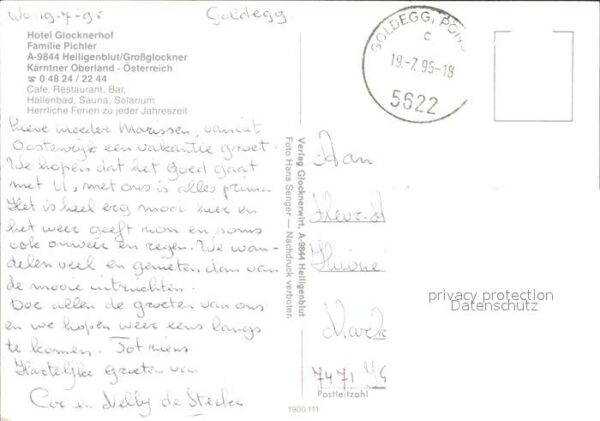 Wo 19-7-95 Goldegg.
Hotel Glocknerhof
Familie Pichler
A-9844 Heiligenblut/Großglockner
Kärntner Oberland - Österreich
☎ 0 48 24 / 22 44
Cafe, Restaurant, Bar,
Hallenbad, Sauna, Solarium
Herrliche Ferien zu jeder Jahreszeit
Lieve moeder Marissen, vanuit
Oostenrijk een vakantie groet.
We hopen dat het goed gaat
met U, met ons is alles prima
Het is heel erg mooi hier en
het weer geeft zon en soms
ook onweer en regen. We wan-
delen veel en genieten dan van
de mooie uitzichten.
Doe allen de groeten van ons
en we hopen weer eens langs
te komen. Tot ziens
Hartelijke groeten van
Cor en Nelly de
Verlag Glocknerwirt, A-9844 Heiligenblut
Foto Hans Senger — Nachdruck verboten
GOLDEGG,
c
19.-7.95-18
5622
Aan
7471
Postleitzahl
1900 111
privacy protection
Datenschutz